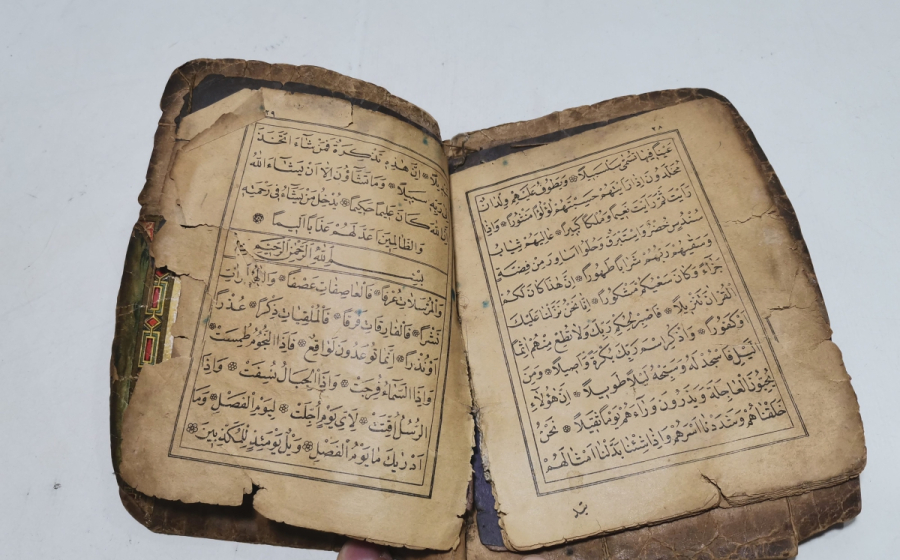 ٢٨
عَيْنًا فِيهَا تُسَمَّى سَلْسَبِيلًا * وَيَطُوفُ عَلَيْهِمْ وِلْدَانٌ
مُخَلَّدُونَ اِذَا رَاَيْتَهُمْ حَسِبْتَهُمْ لُؤْلُؤًا مَنْثُورًا * وَاِذَا
رَاَيْتَ ثَمَّ رَاَيْتَ نَعِيمًا وَمُلْكًا كَبِيرًا * عَالِيَهُمْ ثِيَابُ
سُنْدُسٍ خُضْرٌ وَاِسْتَبْرَقٌ وَحُلُّوا اَسَاوِرَ مِنْ فِضَّةٍ
وَسَقٰيهُمْ رَبُّهُمْ شَرَابًا طَهُورًا * اِنَّ هٰذَا كَانَ لَكُمْ
جَزَاءً وَكَانَ سَعْيُكُمْ مَشْكُورًا * اِنَّا نَحْنُ نَزَّلْنَا عَلَيْكَ
الْقُرْاٰنَ تَنْزِيلًا * فَاصْبِرْ لِحُكْمِ رَبِّكَ وَلَا تُطِعْ مِنْهُمْ اٰثِمًا
اَوْ كَفُورًا * وَاذْكُرِ اسْمَ رَبِّكَ بُكْرَةً وَاَصِيلًا * وَمِنَ
الَّيْلِ فَاسْجُدْ لَهُ وَسَبِّحْهُ لَيْلًا طَوِيلًا * اِنَّ هٰؤُلَاءِ
يُحِبُّونَ الْعَاجِلَةَ وَيَذَرُونَ وَرَاءَهُمْ يَوْمًا ثَقِيلًا * نَحْنُ
خَلَقْنَاهُمْ وَشَدَدْنَا اَسْرَهُمْ وَاِذَا شِئْنَا بَدَّلْنَا اَمْثَالَهُمْ
٢٩
اِنَّ هٰذِهِ تَذْكِرَةٌ فَمَنْ شَاءَ اتَّخَذَ
سَبِيلًا * وَمَا تَشَاؤُنَ اِلَّا اَنْ يَشَاءَ اللّٰهُ
اِنَّ اللّٰهَ كَانَ عَلِيمًا حَكِيمًا * يُدْخِلُ مَنْ يَشَاءُ فِى رَحْمَتِهِ
وَالظَّالِمِينَ اَعَدَّ لَهُمْ عَذَابًا اَلِيمًا *
بِسْمِ اللّٰهِ الرَّحْمٰنِ الرَّحِيمِ
وَالْمُرْسَلَاتِ عُرْفًا * فَالْعَاصِفَاتِ عَصْفًا * وَالنَّاشِرَاتِ
نَشْرًا * فَالْفَارِقَاتِ فَرْقًا * فَالْمُلْقِيَاتِ ذِكْرًا * عُذْرًا
اَوْ نُذْرًا * اِنَّمَا تُوعَدُونَ لَوَاقِعٌ * فَاِذَا النُّجُومُ طُمِسَتْ *
وَاِذَا السَّمَاءُ فُرِجَتْ * وَاِذَا الْجِبَالُ نُسِفَتْ * وَاِذَا
الرُّسُلُ اُقِّتَتْ * لِاَىِّ يَوْمٍ اُجِّلَتْ * لِيَوْمِ الْفَصْلِ * وَمَا
اَدْرٰيكَ مَا يَوْمُ الْفَصْلِ * وَيْلٌ يَوْمَئِذٍ لِلْمُكَذِّبِينَ *